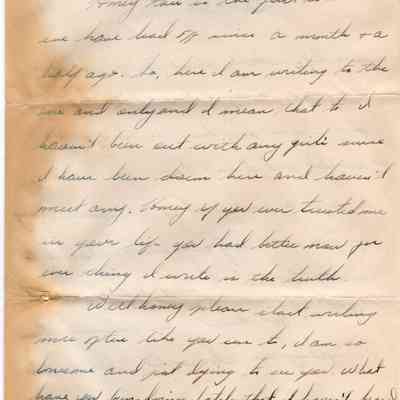 Honey this is the first
we have had off since a month & a
half ago. So, here I am writing to the
one and only and I mean that to I
haven't been out with any girls since
I have been down here and haven't
meet any. Honey if you ever trusted me
in your life you had better now for
ever thing I write is the truth
Well honey please start writing
more often like you use to, I am so
lonesome and just dying to see you. What
have you been doing lately that I haven't heard